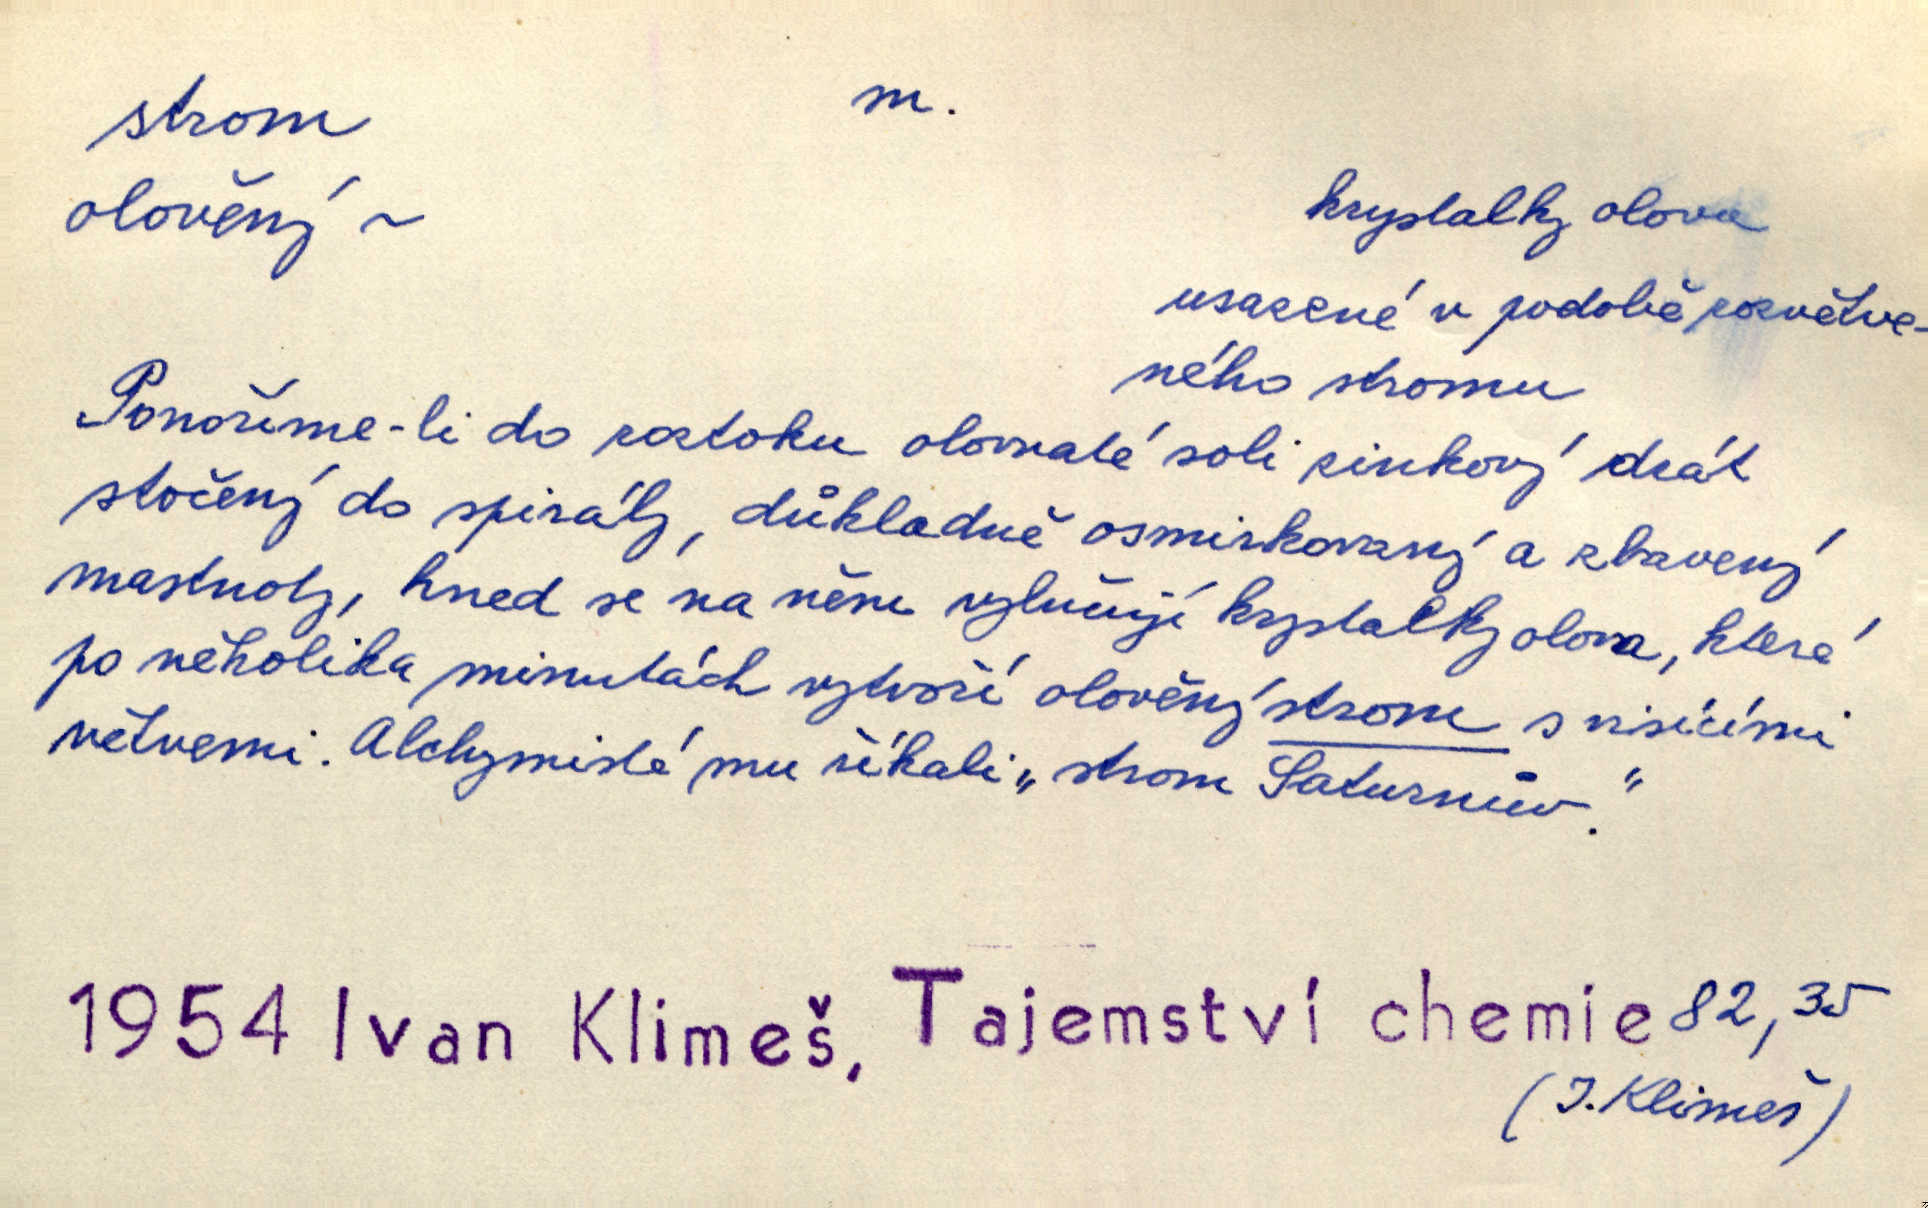 strom
m.
olověný ~
krystalky olova
usazené v podobě rozvětve-
ného stromu
Ponoříme-li do roztoku olovnaté soli zinkový drát
stočený do spirály, důkladně osmirkovaný a zbavený
mastnoty, hned se na něm vylučují krystalky olova, které
po několika minutách vytvoří olověný strom s visícími
větvemi. Alchymisté mu říkali „strom Saturnův."
1954 Ivan Klimeš, Tajemství chemie 82, 35
(I. Klimeš)